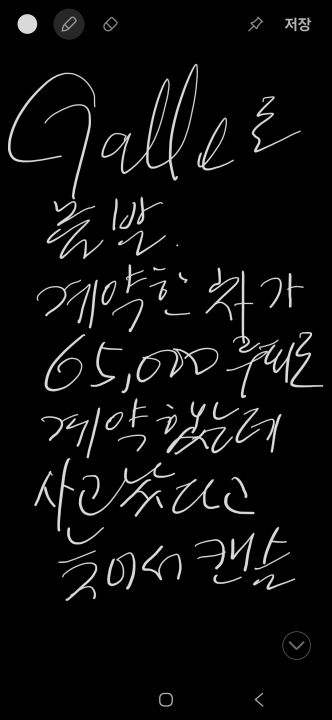 저장
Galle로
출발.
계약한 차가
65,000 루피로
계약했는데
사고났다고
늦어서 캔슬